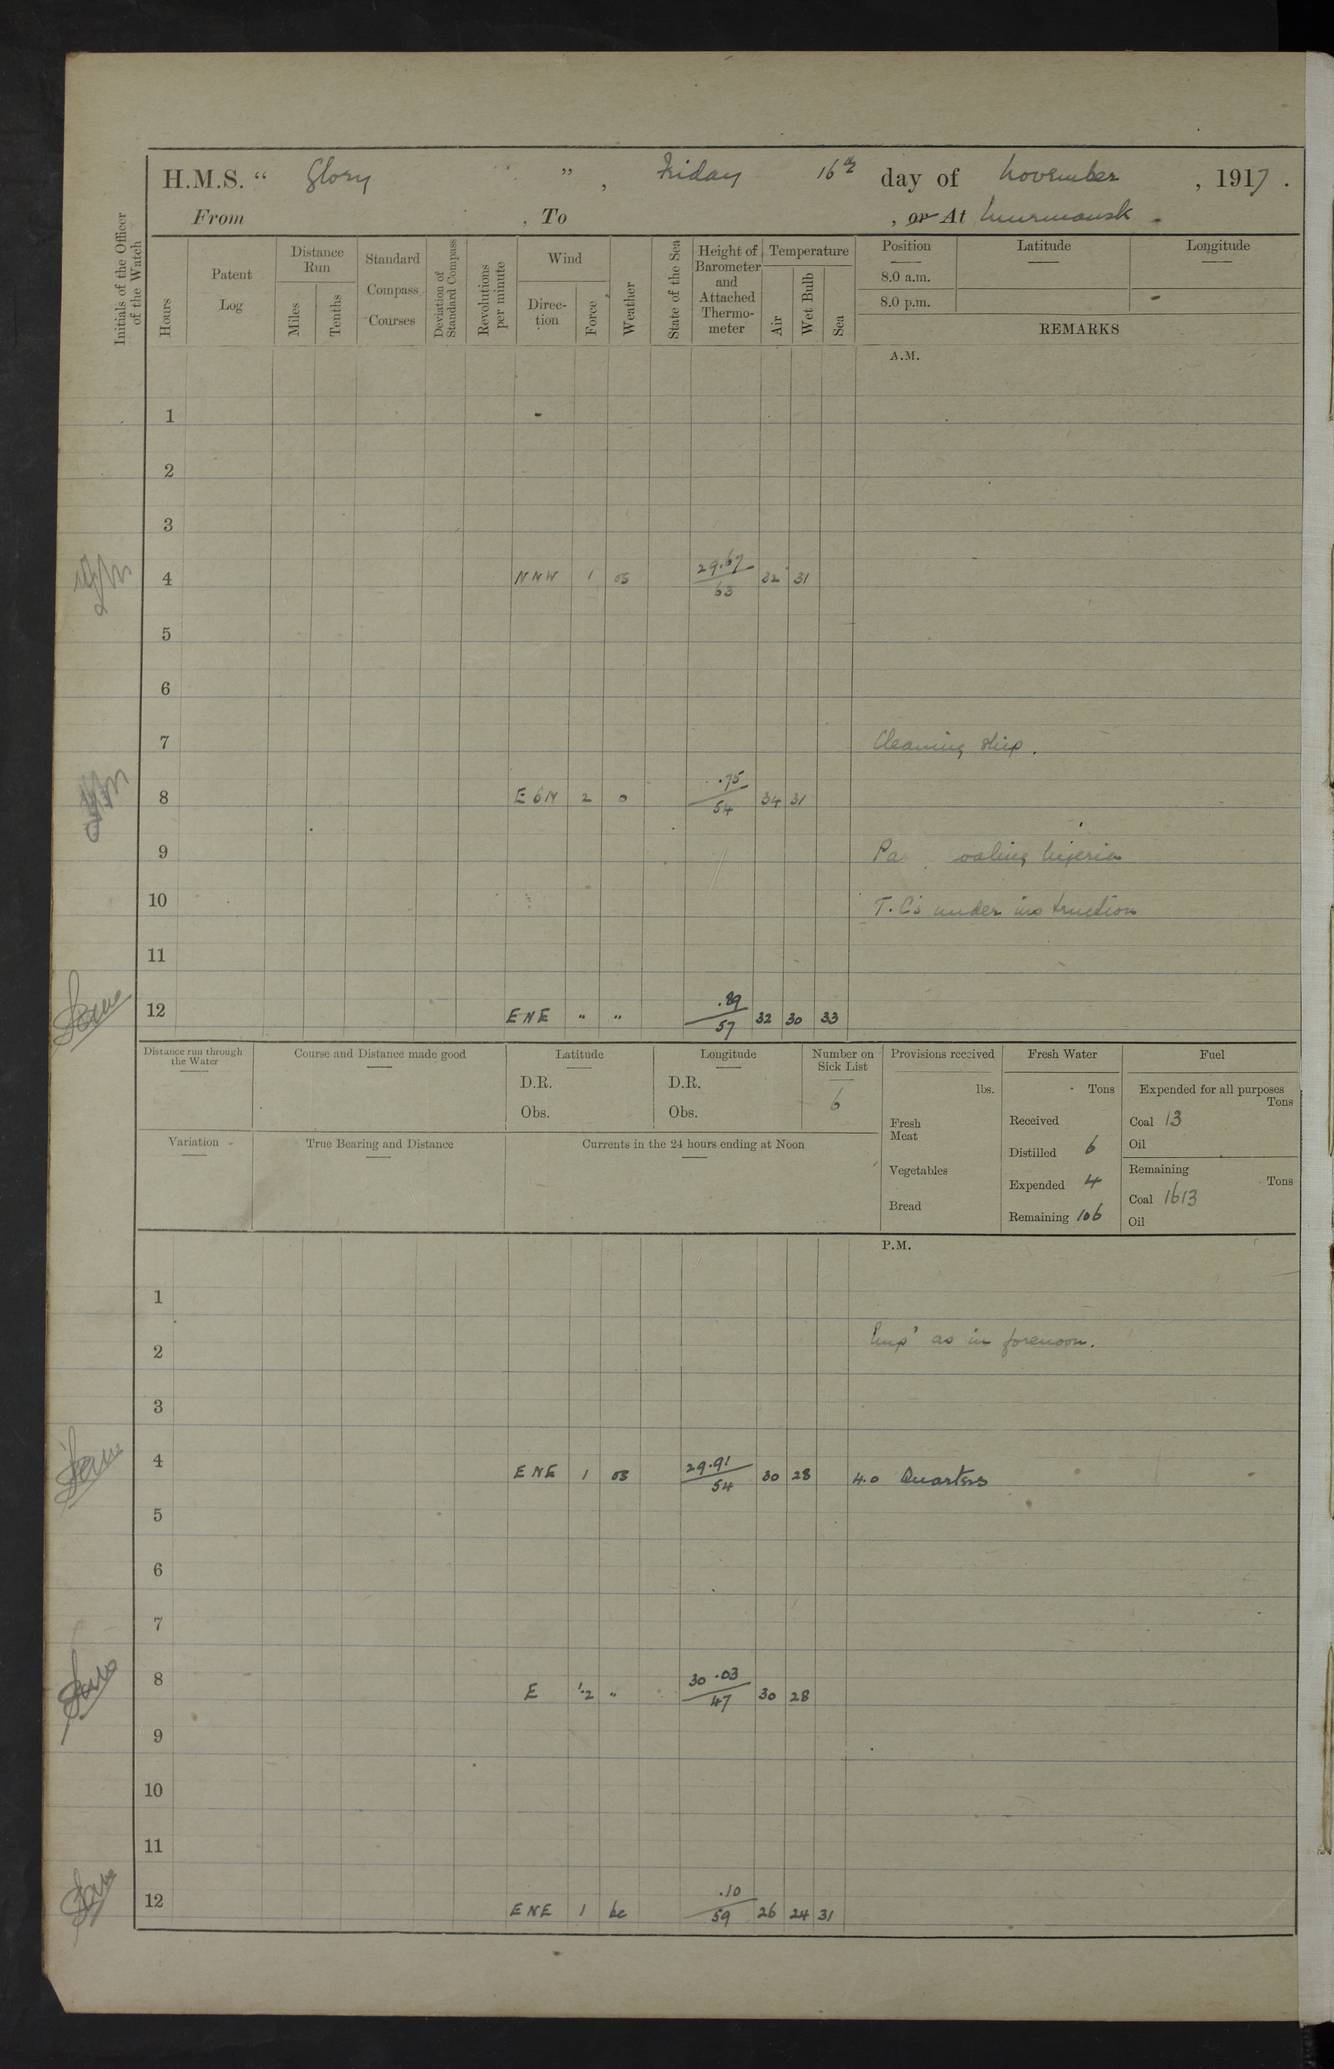 H.M.S. “ Glory ” , Friday 16th day of November , 1917 .
From , To , or At Murmansk .
Initials of the Officer of the Watch
Hours
Patent Log
Distance Run
Miles
Tenths
Standard Compass Courses
Deviation of Standard Compass
Revolutions per minute
Wind
Direction
Force
Weather
State of the Sea
Height of Barometer and Attached Thermometer
Temperature
Air
Wet Bulb
Sea
Position Latitude Longitude
8.0 a.m.
8.0 p.m.
REMARKS
A.M.
1
2
3
4 NNW 1 os 29.67/63 32 31
5
6
7 Cleaning ship.
8 E b N 2 o .75/54 34 31
9 Pa
10 T.C's under instruction
11
12 ENE " " .89/57 32 30 33
Distance run through the Water
Course and Distance made good
Latitude
D.R.
Obs.
Longitude
D.R.
Obs.
Number on Sick List
6
Provisions received
lbs.
Fresh Meat
Vegetables
Bread
Fresh Water
Tons
Received
Distilled 6
Expended 4
Remaining 106
Fuel
Expended for all purposes
Tons
Coal 13
Oil
Remaining
Tons
Coal 1613
Oil
Variation
True Bearing and Distance
Currents in the 24 hours ending at Noon
P.M.
1
2 as in forenoon.
3
4 ENE 1 os 29.91/54 30 28 4.0 Quarters
5
6
7
8 E 1.2 " 30.03/47 30 28
9
10
11
12 ENE 1 bc .10/59 26 24 31